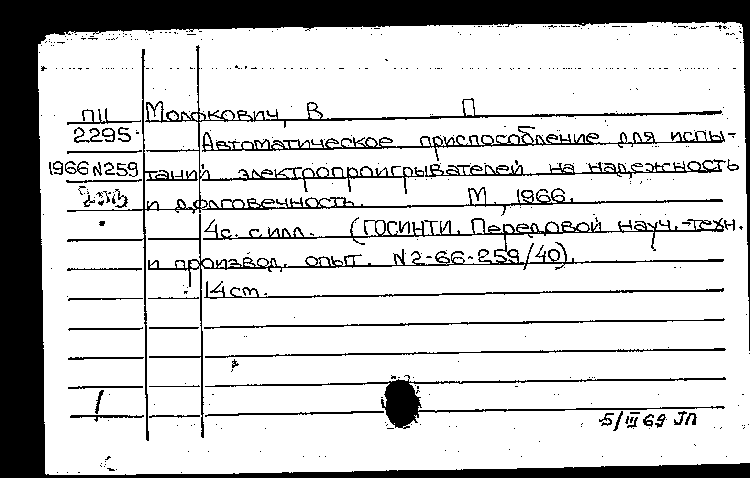 ПЦ Молокович, В П
2295. Автоматическое приспособление для испы-
1966 N259 таний электропроигрывателей на надежность
2 экз и долговечность. М., 1966.
4с. с илл. (ГОСИНТИ. Передовой науч.-техн.
и производ. опыт. N2-66-259/40).
14 cm.
5/III 69 ЛП